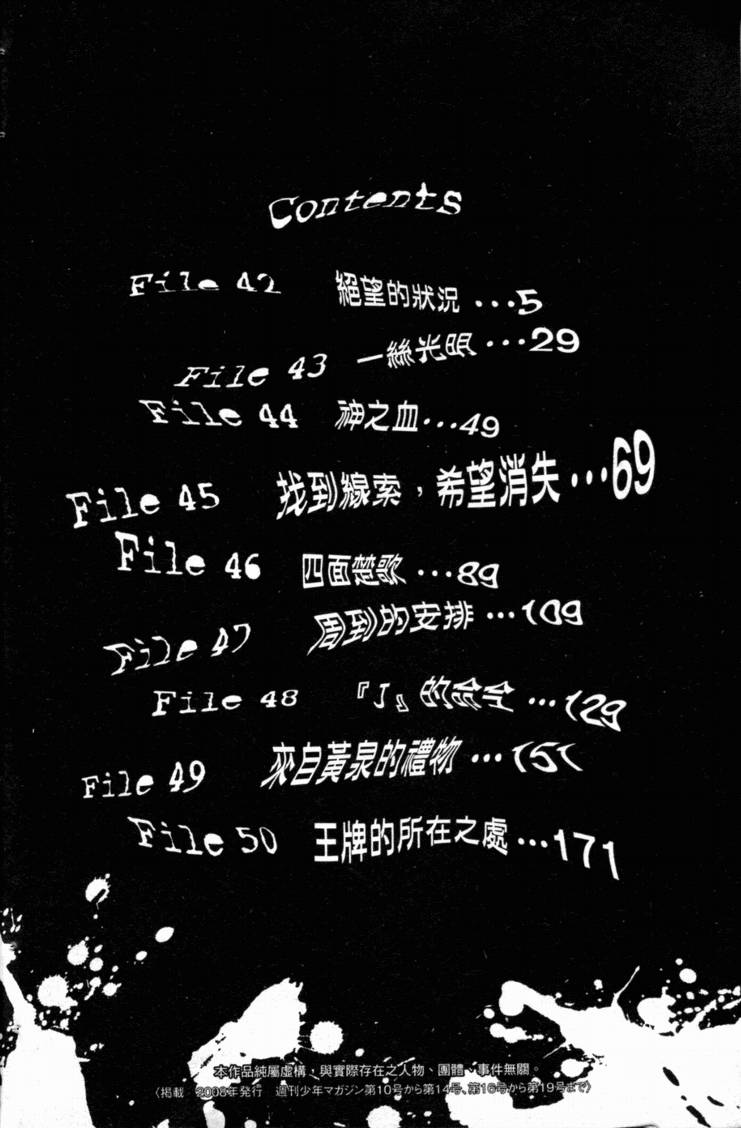 Contents
File 42 絕望的狀況 …5
File 43 一絲光明 …29
File 44 神之血…49
File 45 找到線索，希望消失…69
File 46 四面楚歌 …89
File 47 周到的安排 …109
File 48 『J』的命令 …129
File 49 來自黃泉的禮物 …151
File 50 王牌的所在之處…171
本作品純屬虛構，與實際存在之人物、團體、事件無關。
〈掲載 2008年発行 週刊少年マガジン第10号から第14号、第16号から第19号まで〉